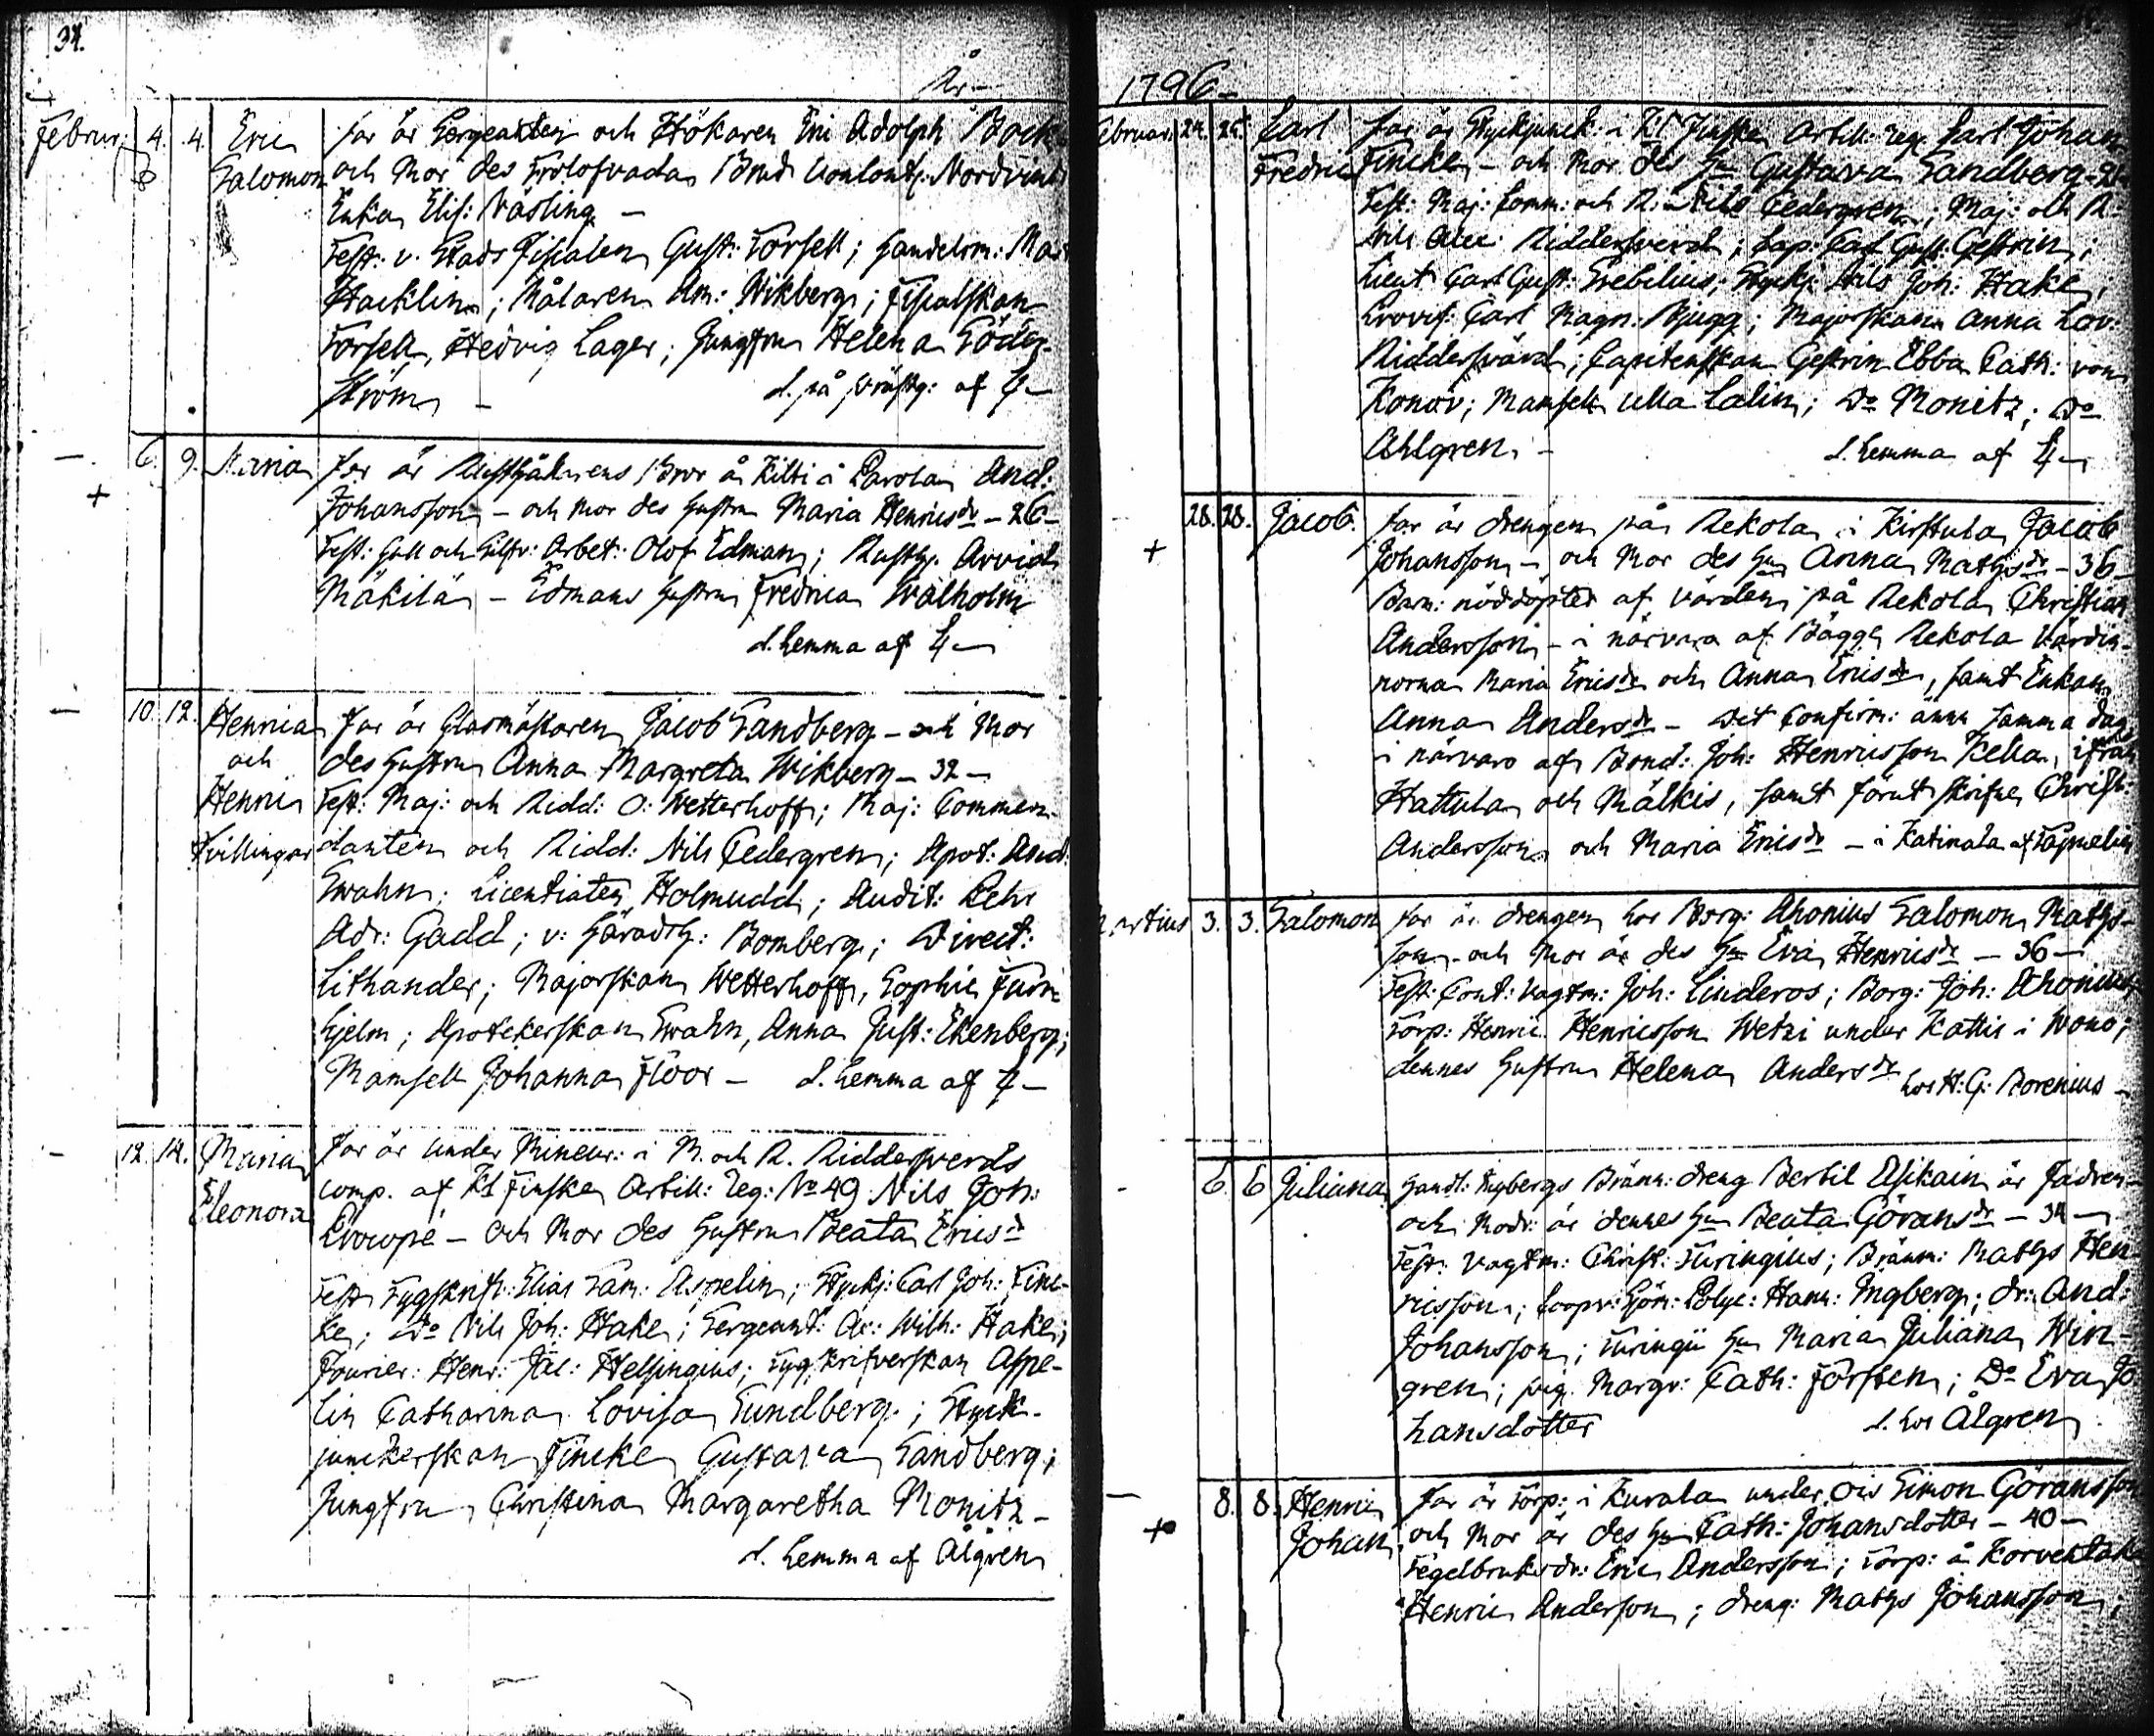 34.
År
Februar: 4. 4. Eric far är Sergeanten och Hökaren Eric Adolph Bock
8 Salomon och Mor des trolofvada Brud Nordvinds
Enka, Elis: Näsling –
Test: v. Stads Fiscalen Gust: Forsell; Handelsm:
Hacklin; Målaren Am: Wikberg; Fiscalskan
Forsell, Hedvig Lager; Jungfru Helena Söder-
ström – d. på prästg: af
– 6. 9. Maria far är Rusthållarens Bror å Kilti i Parola And:
+ Johansson – och Mor des hustru Maria Henrics dr – 26 –
Test: Arbet: Olof Edman; Rusth. Arvid
Mäkilä – Edmans hustru Fredrica Wålholm
d. hemma af
– 10. 12. Henrica far är Glasmästaren Jacob Sandberg – och Mor
och des hustru Anna Margreta Wikberg – 32 –
Henric Test: Maj: och Ridd: O: Wetterhoff; Maj: Commen-
Tvillingar danten och Ridd: Nils Cedergren; Apot: And:
Swahn; Licentiaten Holmudd; Audit: Pehr
Adr: Gadd; v: Häradsh: Bomberg; Direct:
Lithander; Majorskan Wetterhoff, Sophie Furu-
hjelm; Apotekerskan Swahn, Anna Just: Ekenberg;
Mamsell Johanna Floor – d. hemma af
– 12. 14. Maria far är under Mineur: i M. och R. Riddersverds
Eleonora comp. af Kl Finska Artill: Reg: No 49 Nils Joh:
– och Mor des hustru Beata Erics dr
Test Tygskrif: Elias Sam: Aspelin; Styckj: Carl Joh: Finc-
ke; Do Nils Joh: Hake; Sergeant: Ax: Wilh: Hake;
Fourier: Henr: Jac: Helsingius; Tygskrifverskan Aspe-
lin Catharina Lovisa Sundberg; Styck-
junckerskan Fincke Gustava Sandberg;
Jungfru Christina Margaretha Monitz –
d. hemma af Ålgren
1796 –
Februari 24. 25. Carl far är Styckjunck: i Kl Finska Artill: reg: Carl Johan
Fredric Fincke – och Mor des Hu Gustava Sandberg –
Test: Maj: Comm: och R: Nils Cedergren; Maj: och R
Alex: Riddersverd; Cap: Carl Gust: Gestrin;
Lieut Carl Gust: Grebelius; Styckj: Nils Joh: Hake;
Carl Magn: Bjugg; Majorskan Anna Lov:
Riddersvärd; Capitenskan Gestrin Ebba Cath: von
Konow; Mamsell Ulla Calin; Do Monitz; Do
Ahlgren. – d. hemma af
+ 28. 28. Jacob. far är drengen på Rekola i Kirstula Jacob
Johansson – och Mor des Hu Anna Mathsdr – 36 –
Barn: nöddöptes af värden på Rekola Christian
Andersson – i närvara af Bägge Rekola värdin-
norna Maria Ericsdr och Anna Ericsdr, samt Enkan
Anna Andersdr – Det confirm: ännu samma dag
i närvaro af Bond: Joh: Henricsson Kella, ifrån
Hattula och Mälkis, samt förut skrifne Christ:
Andersson och Maria Ericsdr – i Katinala af
Martius 3. 3. Salomon far är drengen hos Borg: Ahonius Salomon Maths-
son – och Mor är des Hu Eva Henricsdr – 36 –
Test: Cont: Vagtm: Joh: Linderos; Borg: Joh: Ahonius
Torp: Henric Henricsson Wetzi under Kattis i Wono;
dennes hustru Helena Andersdr hos H: G: Borenius –
– 6. 6 Juliana Handl: Bränn: dreng Bertil Asikain är Fadren –
och Modr: är dennes Hu Beata Göransdr – 34 –
Test: Vagtm: Christ: Turingius; Bränm: Maths Hen-
ricsson; Hans: Ingberg; dr: And:
Johansson; Turingii Hu Maria Juliana Win-
gren; pig. Margr: Cath: Forsten; Do Eva Jo
hansdotter d. hos Ålgren
– 8. 8. Henric far är Torp: i Kurala under Ois Simon Göransson
+ Johan. och Mor är des Hu Cath: Johansdotter – 40 –
Tegelbruksdr: Eric Andersson; Torp: å
Henric Andersson; dreng: Maths Johansson;